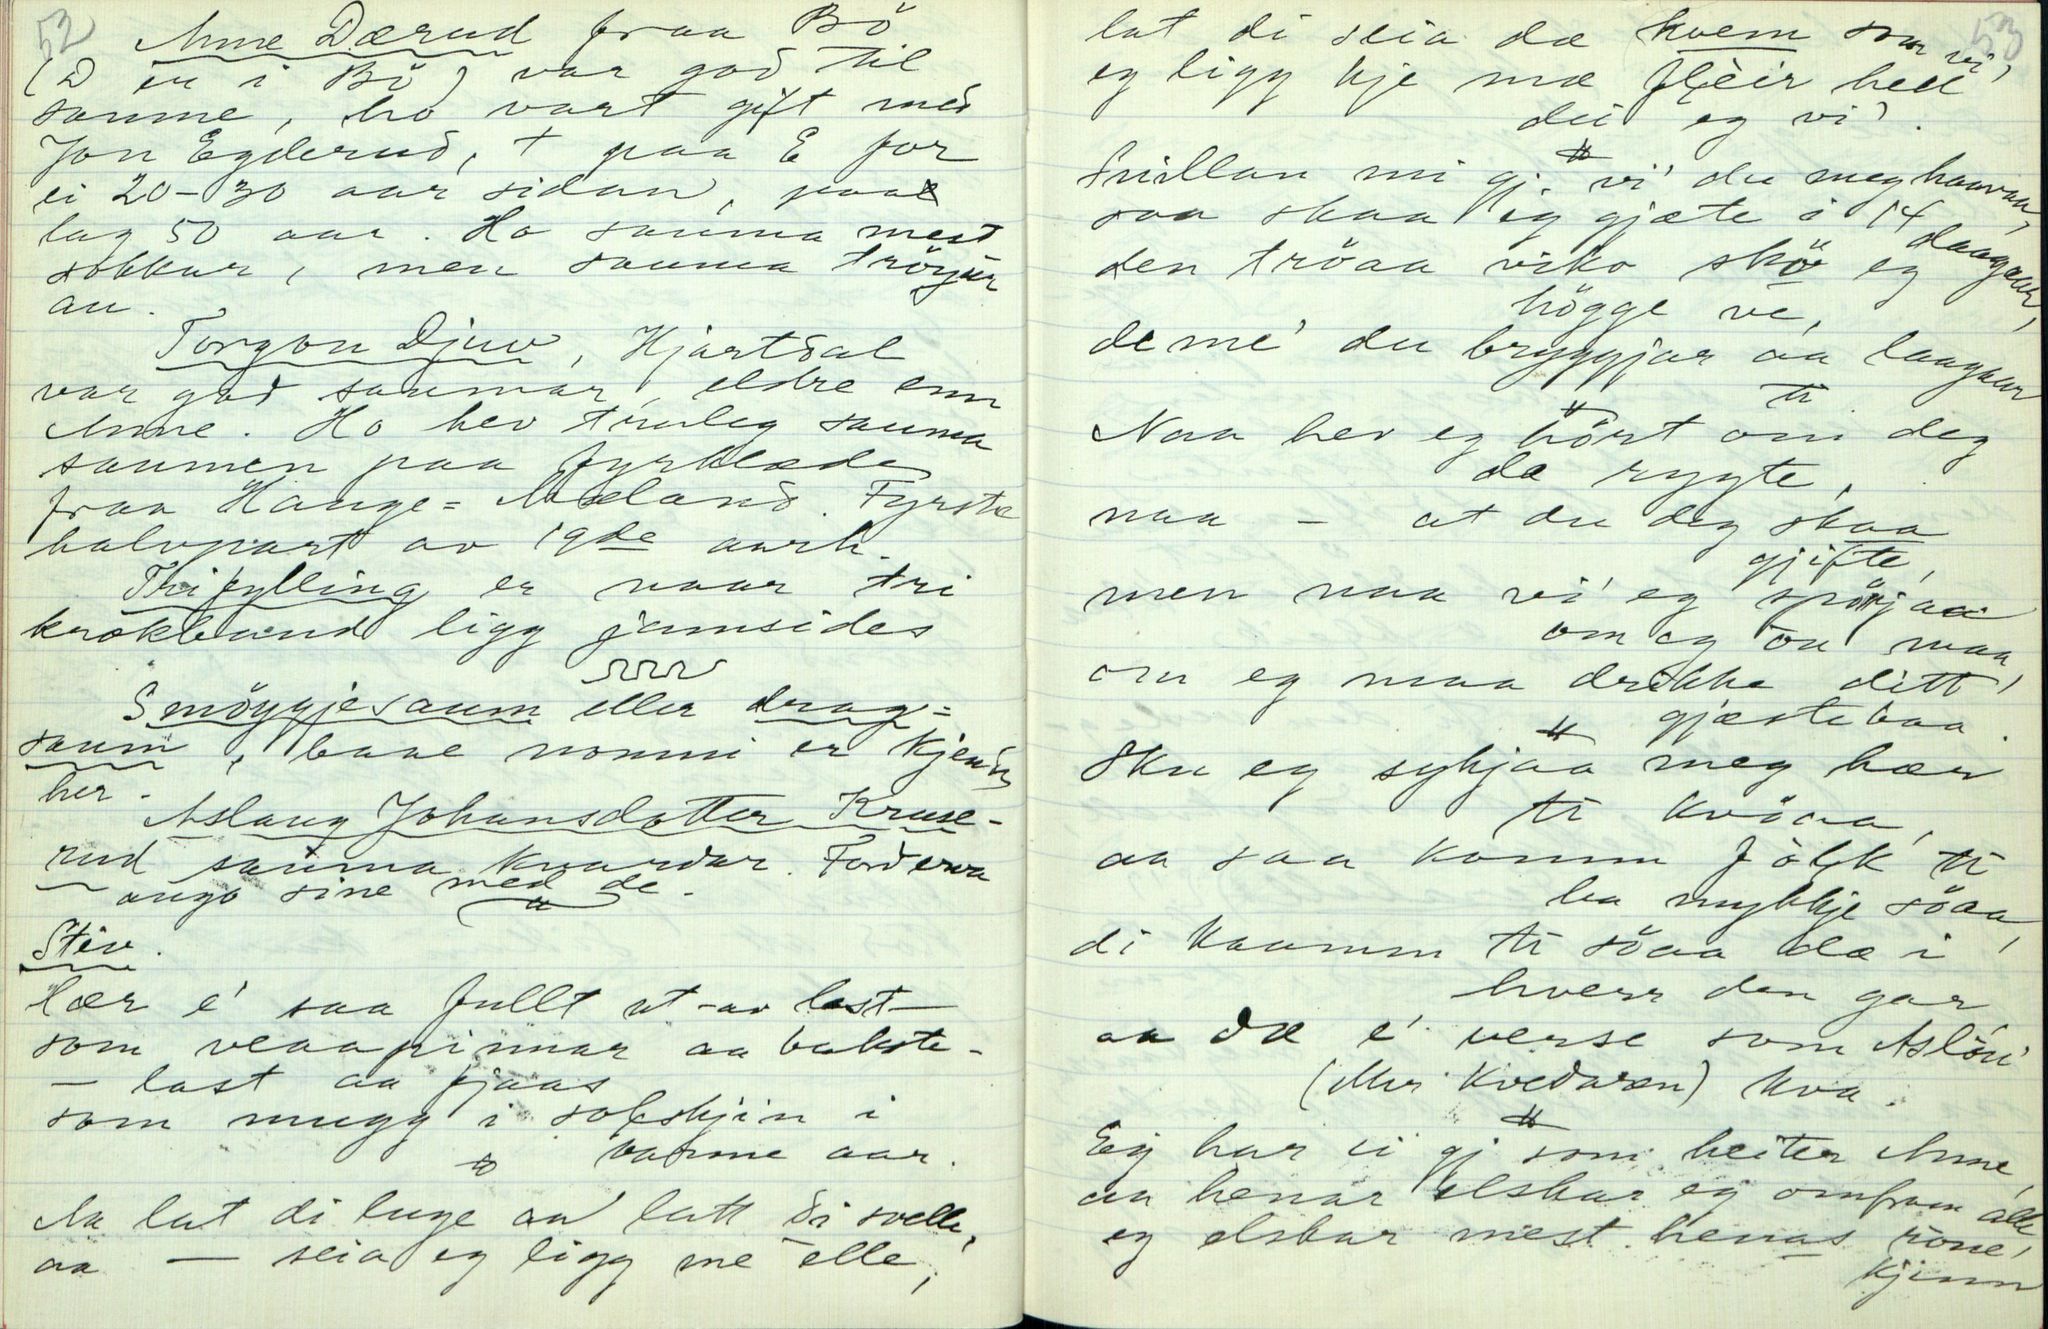 52
Anne Dærud fraa Bö
(D er i Bö) var god til
saume, ho vart gift med
Jon Egderud, † paa E for
ei 20-30 aar sidan, paa
lag 50 aar. Ho sauma mest
sokkar, men sauma tröyjur
au.
Torgon Djuv, Hjartdal
var god saumar, eldre enn
Anne. Ho hev truleg sauma
saumen paa fyrklæde
fraa Hauge=Mæland. Fyrste
halvpart av 19de aarh.
Trifylling er naar tri
krokband ligg jamsides
Smöygjesaum eller drag=
saum, baae nomni er kjende
her.
Aslaug Johansdotter Kruse-
rud sauma kvardar. Forderva
augo sine med de.
Stev.
Hær é saa fullt ut-av last
som veaapinnar aa bakste-
— last aa fjaas
som mugg i solskjin i
varme aar.
Aa lat di luge aa latt di svelle,
aa — seia eg ligg me elle,
53
lat di seia dæ kvem som vi,
eg ligg kje mæ fleir hell
dei eg vi'.
Snillan mi gj. vi du meg haavaa,
saa skaa eg gjæte i 14 daagaar,
den tröaa viko skö eg
högge ve,
de mé du bryggjar aa laagaar
ti.
Naa hev eg hört om deg
da rygte,
naa — at du deg skaa
gjifte,
men naa vi' eg spörjaa
om eg òu maa
om eg maa drikke ditt
gjæstebaa.
Sku eg sykjaa meg hær
ti kvöaa,
aa saa komm fölk ti
ha mykkje söaa,
di kaamm ti söaa dæ i
hverr den gar
aa dæ é verse som Aslöu
(Mor kvedaren) kva.
Eg har ei gj som heiter Anne,
aa henar elskar eg omfram alle
eg elskar mest henas röue,
kjinn